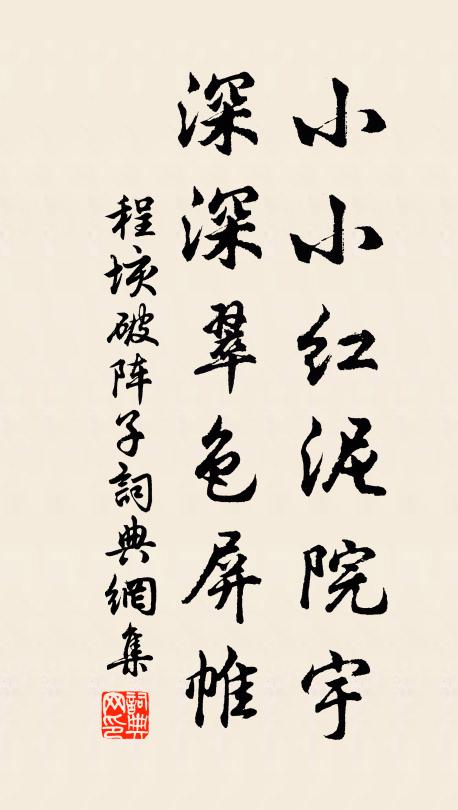 小小红泥院宇
深深翠色屏帷
程垓破阵子詞典網集
詞典
网印